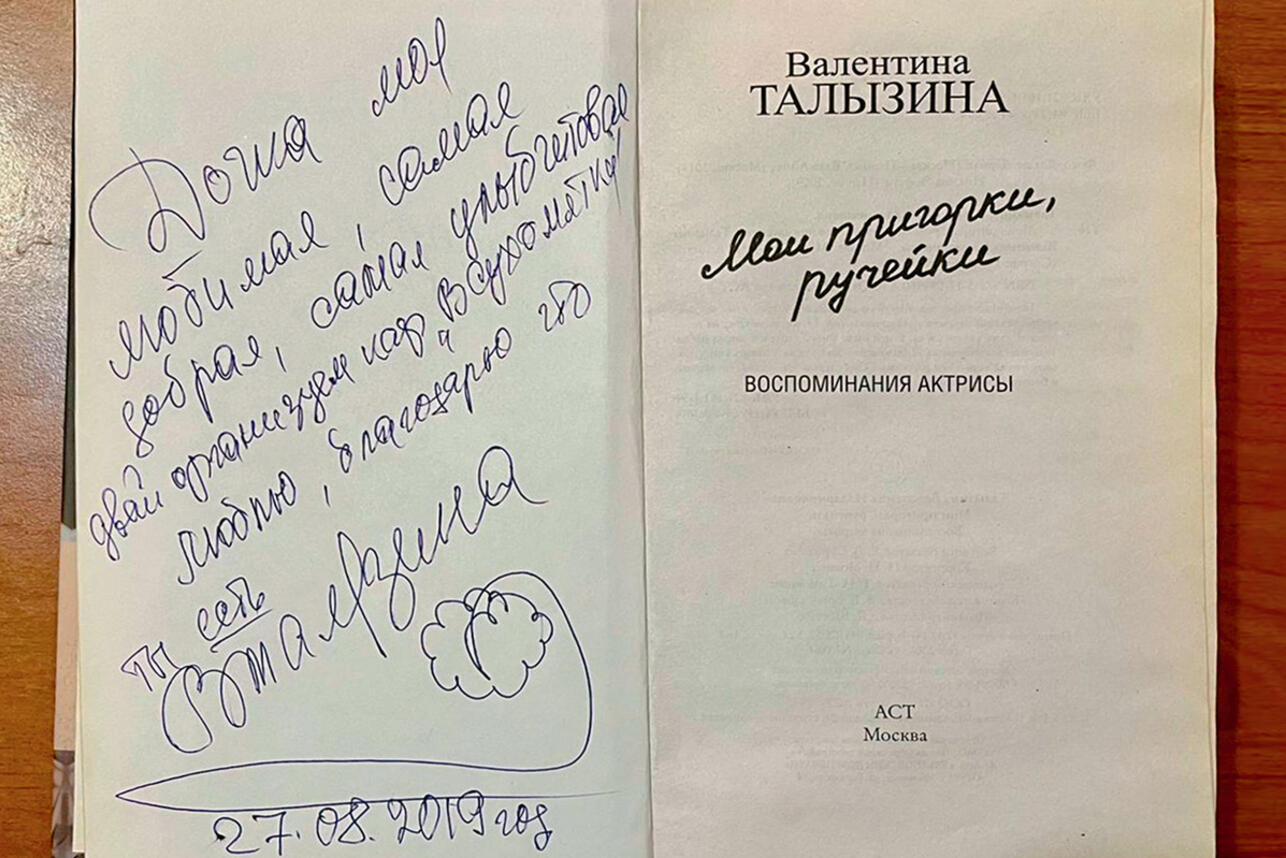 Доша моя
любимая, самая
добрая, самая
двай организуем кафэ „Всухомятку"!
Люблю, благодарю что
ты есть
ВТалызина
27.08.2019 год
Валентина
ТАЛЫЗИНА
Мои пригорки,
ручейки
ВОСПОМИНАНИЯ АКТРИСЫ
АСТ
Москва